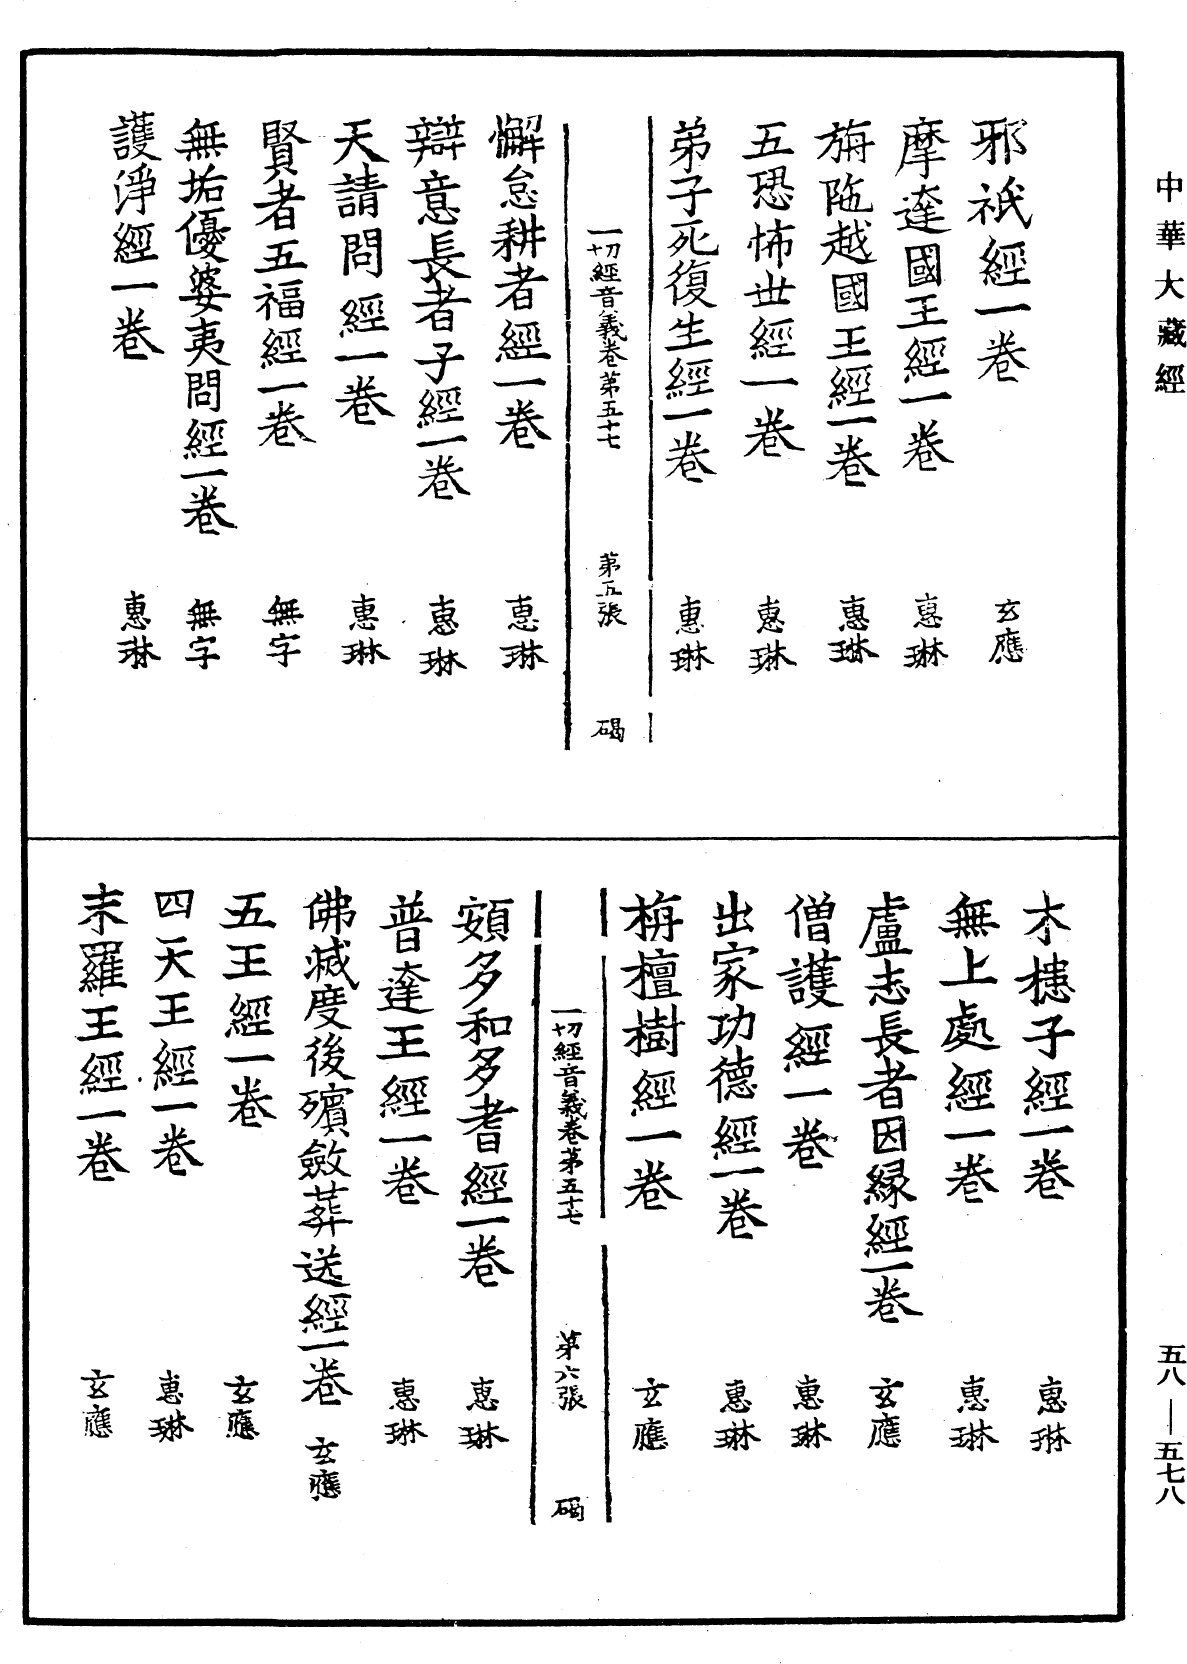 中華大藏經
邪祇經一卷 玄應
摩達國王經一卷 惠琳
旃陁越國王經一卷 惠琳
五恐怖世經一卷 惠琳
弟子死復生經一卷 惠琳
一切經音義卷第五十七 第五張 碣
懈怠耕者經一卷 惠琳
辯意長者子經一卷 惠琳
天請問經一卷 惠琳
賢者五福經一卷 無字
無垢優婆夷問經一卷 無字
護淨經一卷 惠琳
木槵子經一卷 惠琳
無上處經一卷 惠琳
盧志長者因緣經一卷 玄應
僧護經一卷 惠琳
出家功德經一卷 惠琳
栴檀樹經一卷 玄應
一切經音義卷第五十七 第六張 碣
頞多和多耆經一卷 惠琳
普達王經一卷 惠琳
佛滅度後殯斂葬送經一卷 玄應
五王經一卷 玄應
四天王經一卷 惠琳
末羅王經一卷 玄應
五八—五七八